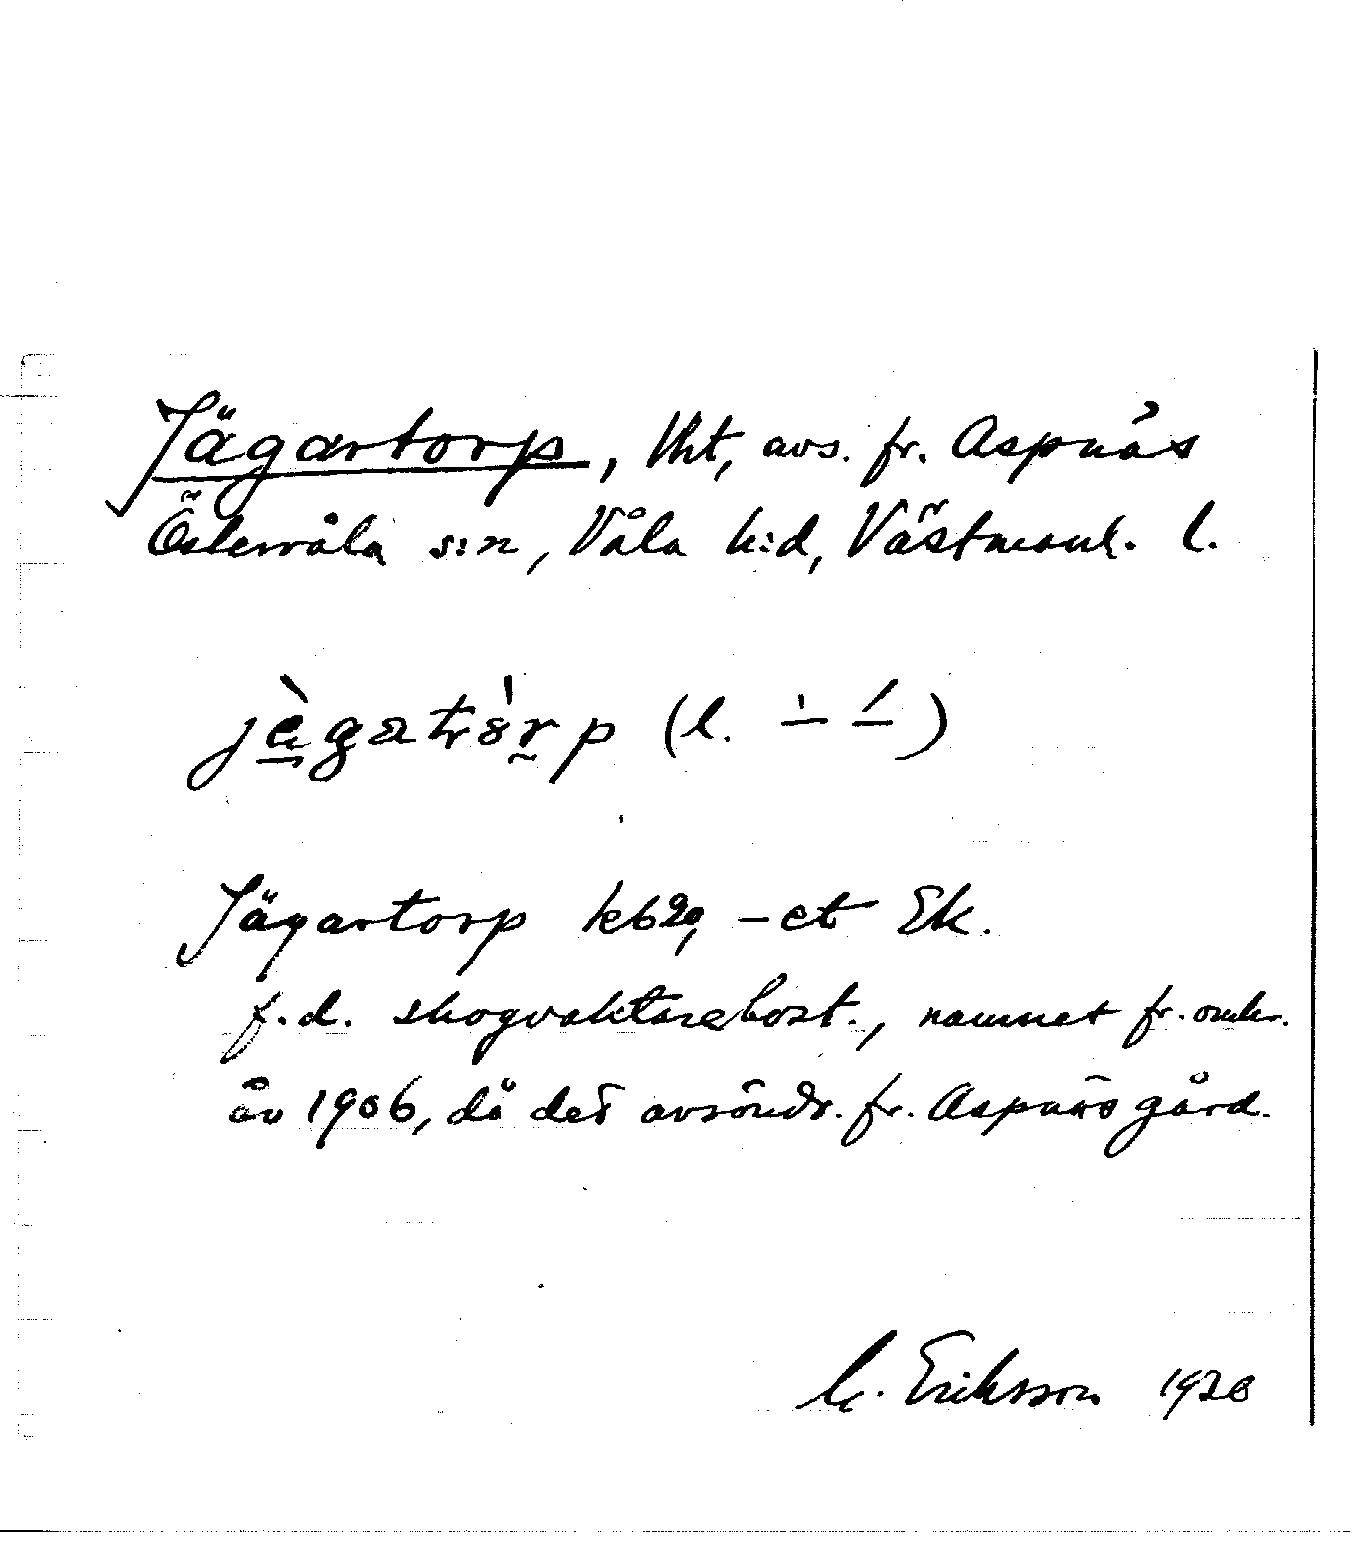 Jägartorp, lht, avs. fr. Aspnäs
Östervåla s:n, Våla h:d, Västmanl. l.
jägatórp (l. – –)
Jägartorp kb29, -et Ek.
f.d. skogvaktarebost., namnet fr. omkr.
år 1906, då det avsöndr. fr. Aspnäs gård.
M. Eriksson 1928